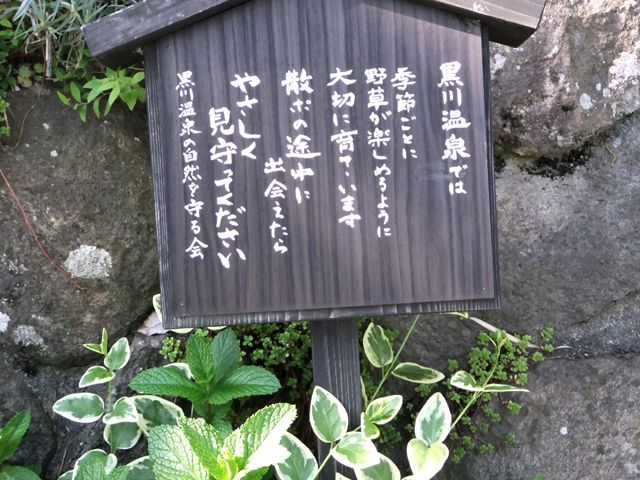 黒川温泉では
季節ごとに
野草が楽しめるように
大切に育てています
散歩の途中に
出会えたら
やさしく
見守ってください
黒川温泉の自然を守る会